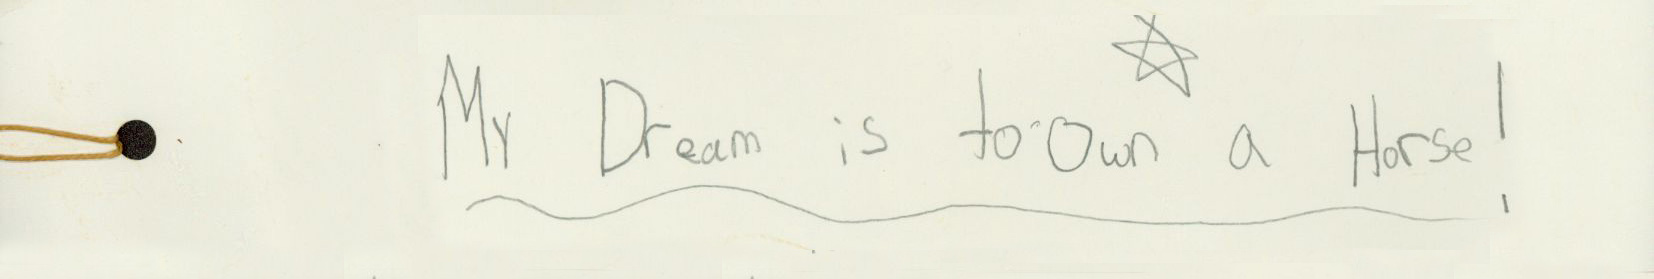 My Dream is to Own a Horse!